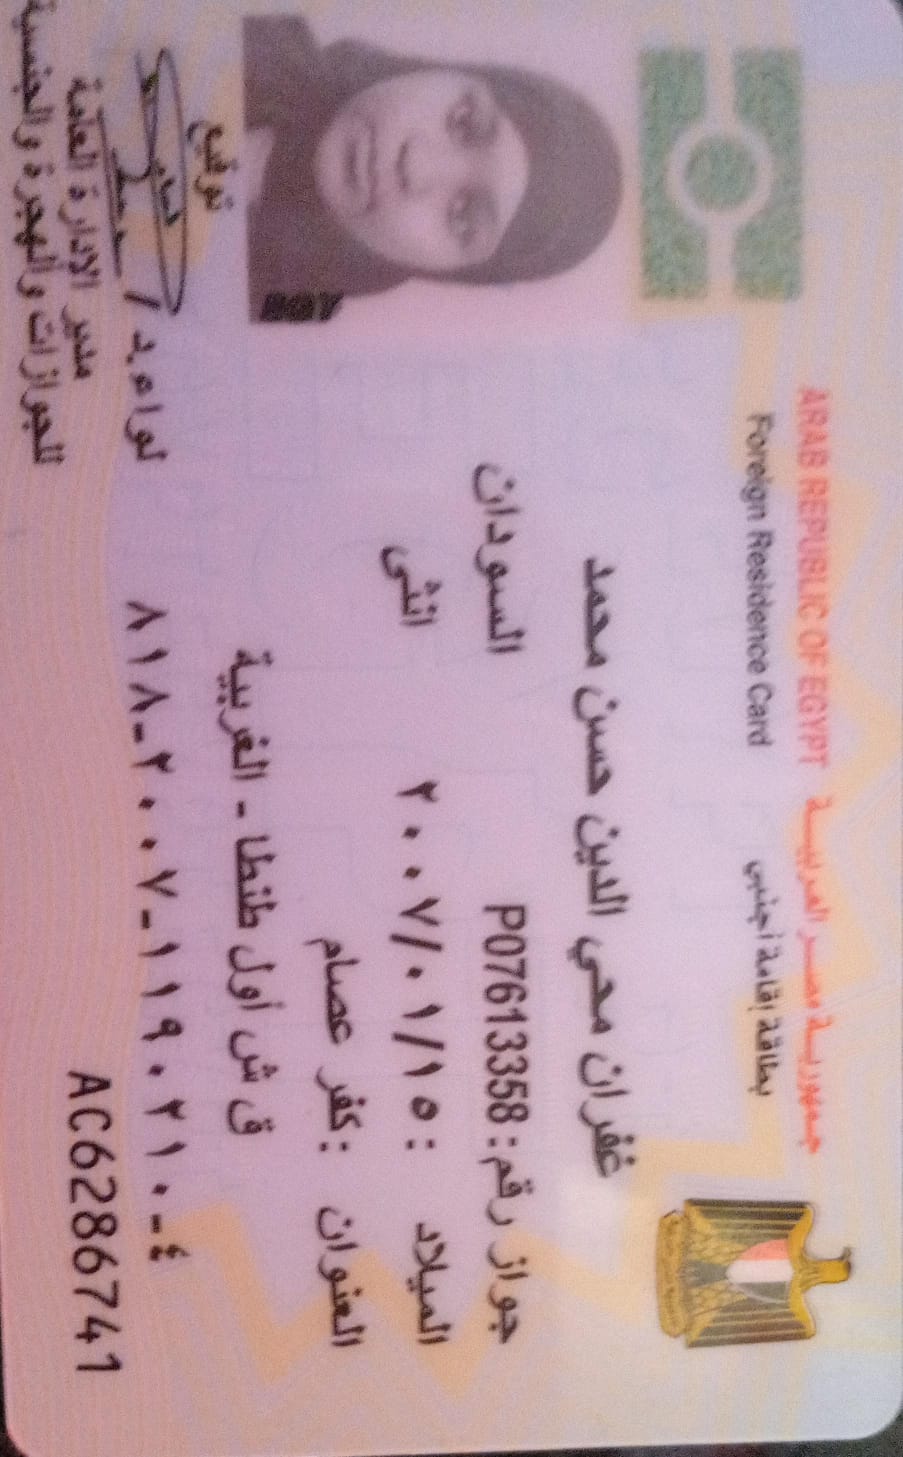 ARAB REPUBLIC OF EGYPT جمهورية مصر العربية
Foreign Residence Card بطاقة إقامة أجنبى
غفران محي الدين حسن محمد
جواز رقم : P07613358 السودان
الميلاد : ٢٠٠٧/٠١/١٥ انثى
العنوان : كفر عصام
ق ش أول طنطا - الغربية
٨١٨-٢٠٠٧-١١٩٠٢١٠-٤
AC6286741
توقيع
لواء د/
مدير الادارة العامة
للجوازات والهجرة والجنسية